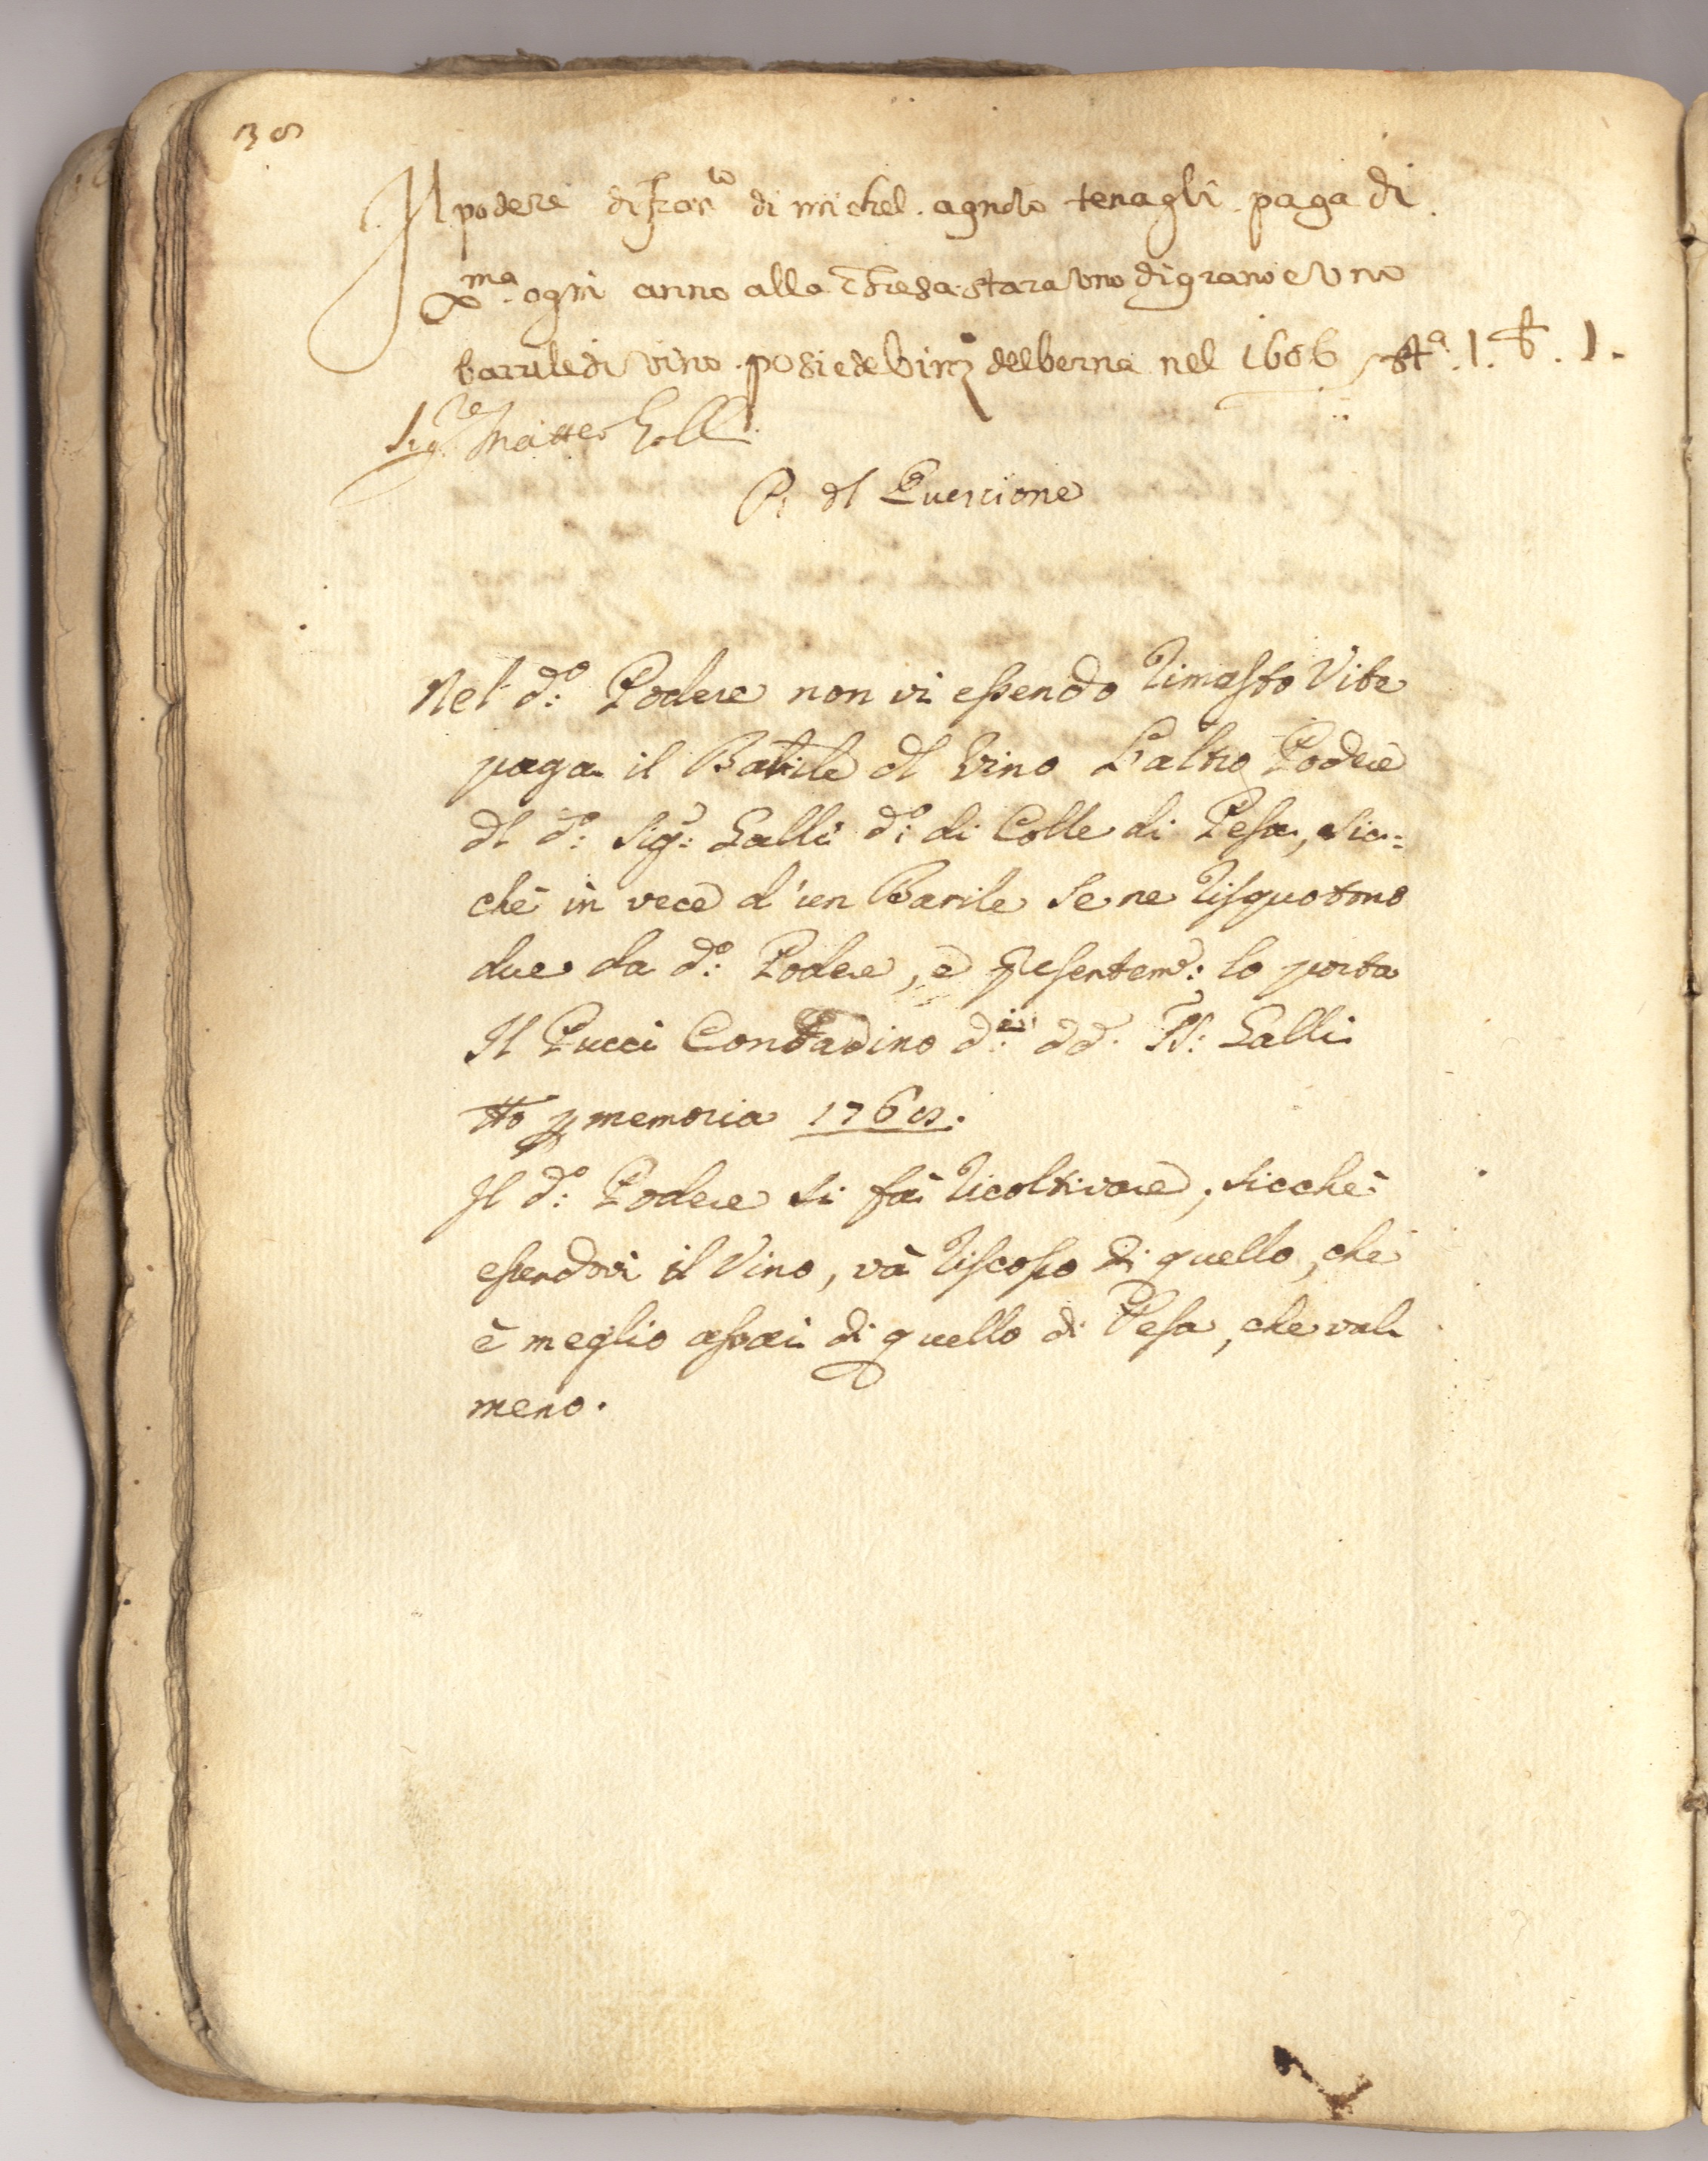 38
Il podere di Franc.co di michel . agnolo tenagli . paga di
Xma. ogni anno alla chiesa stara uno di grano e uno
barrile di vino . posiede Vinz.o del berna nel 1606 sta. 1. b. 1.
Sig.re Matteo Galli
P. dl Quercione
Nel d.o: Podere non vi essendo rimasto Vite
paga il Barile dl Vino L'altro Podere
dl d.o: Sig.r: Galli d.o: di Colle di Pesa, sic=
chè in vece d'un Barile se ne risquotono
due da d.o: Podere, e presentem.e: lo porta
Il Pucci Contadino d.i: dd. SS: Galli
tto p memoria
Il d.o: Podere si fà ricoltivare, sicchè
essendovi il Vino, và riscosso di quello, che
è meglio assai di quello di Pesa, che val
meno.